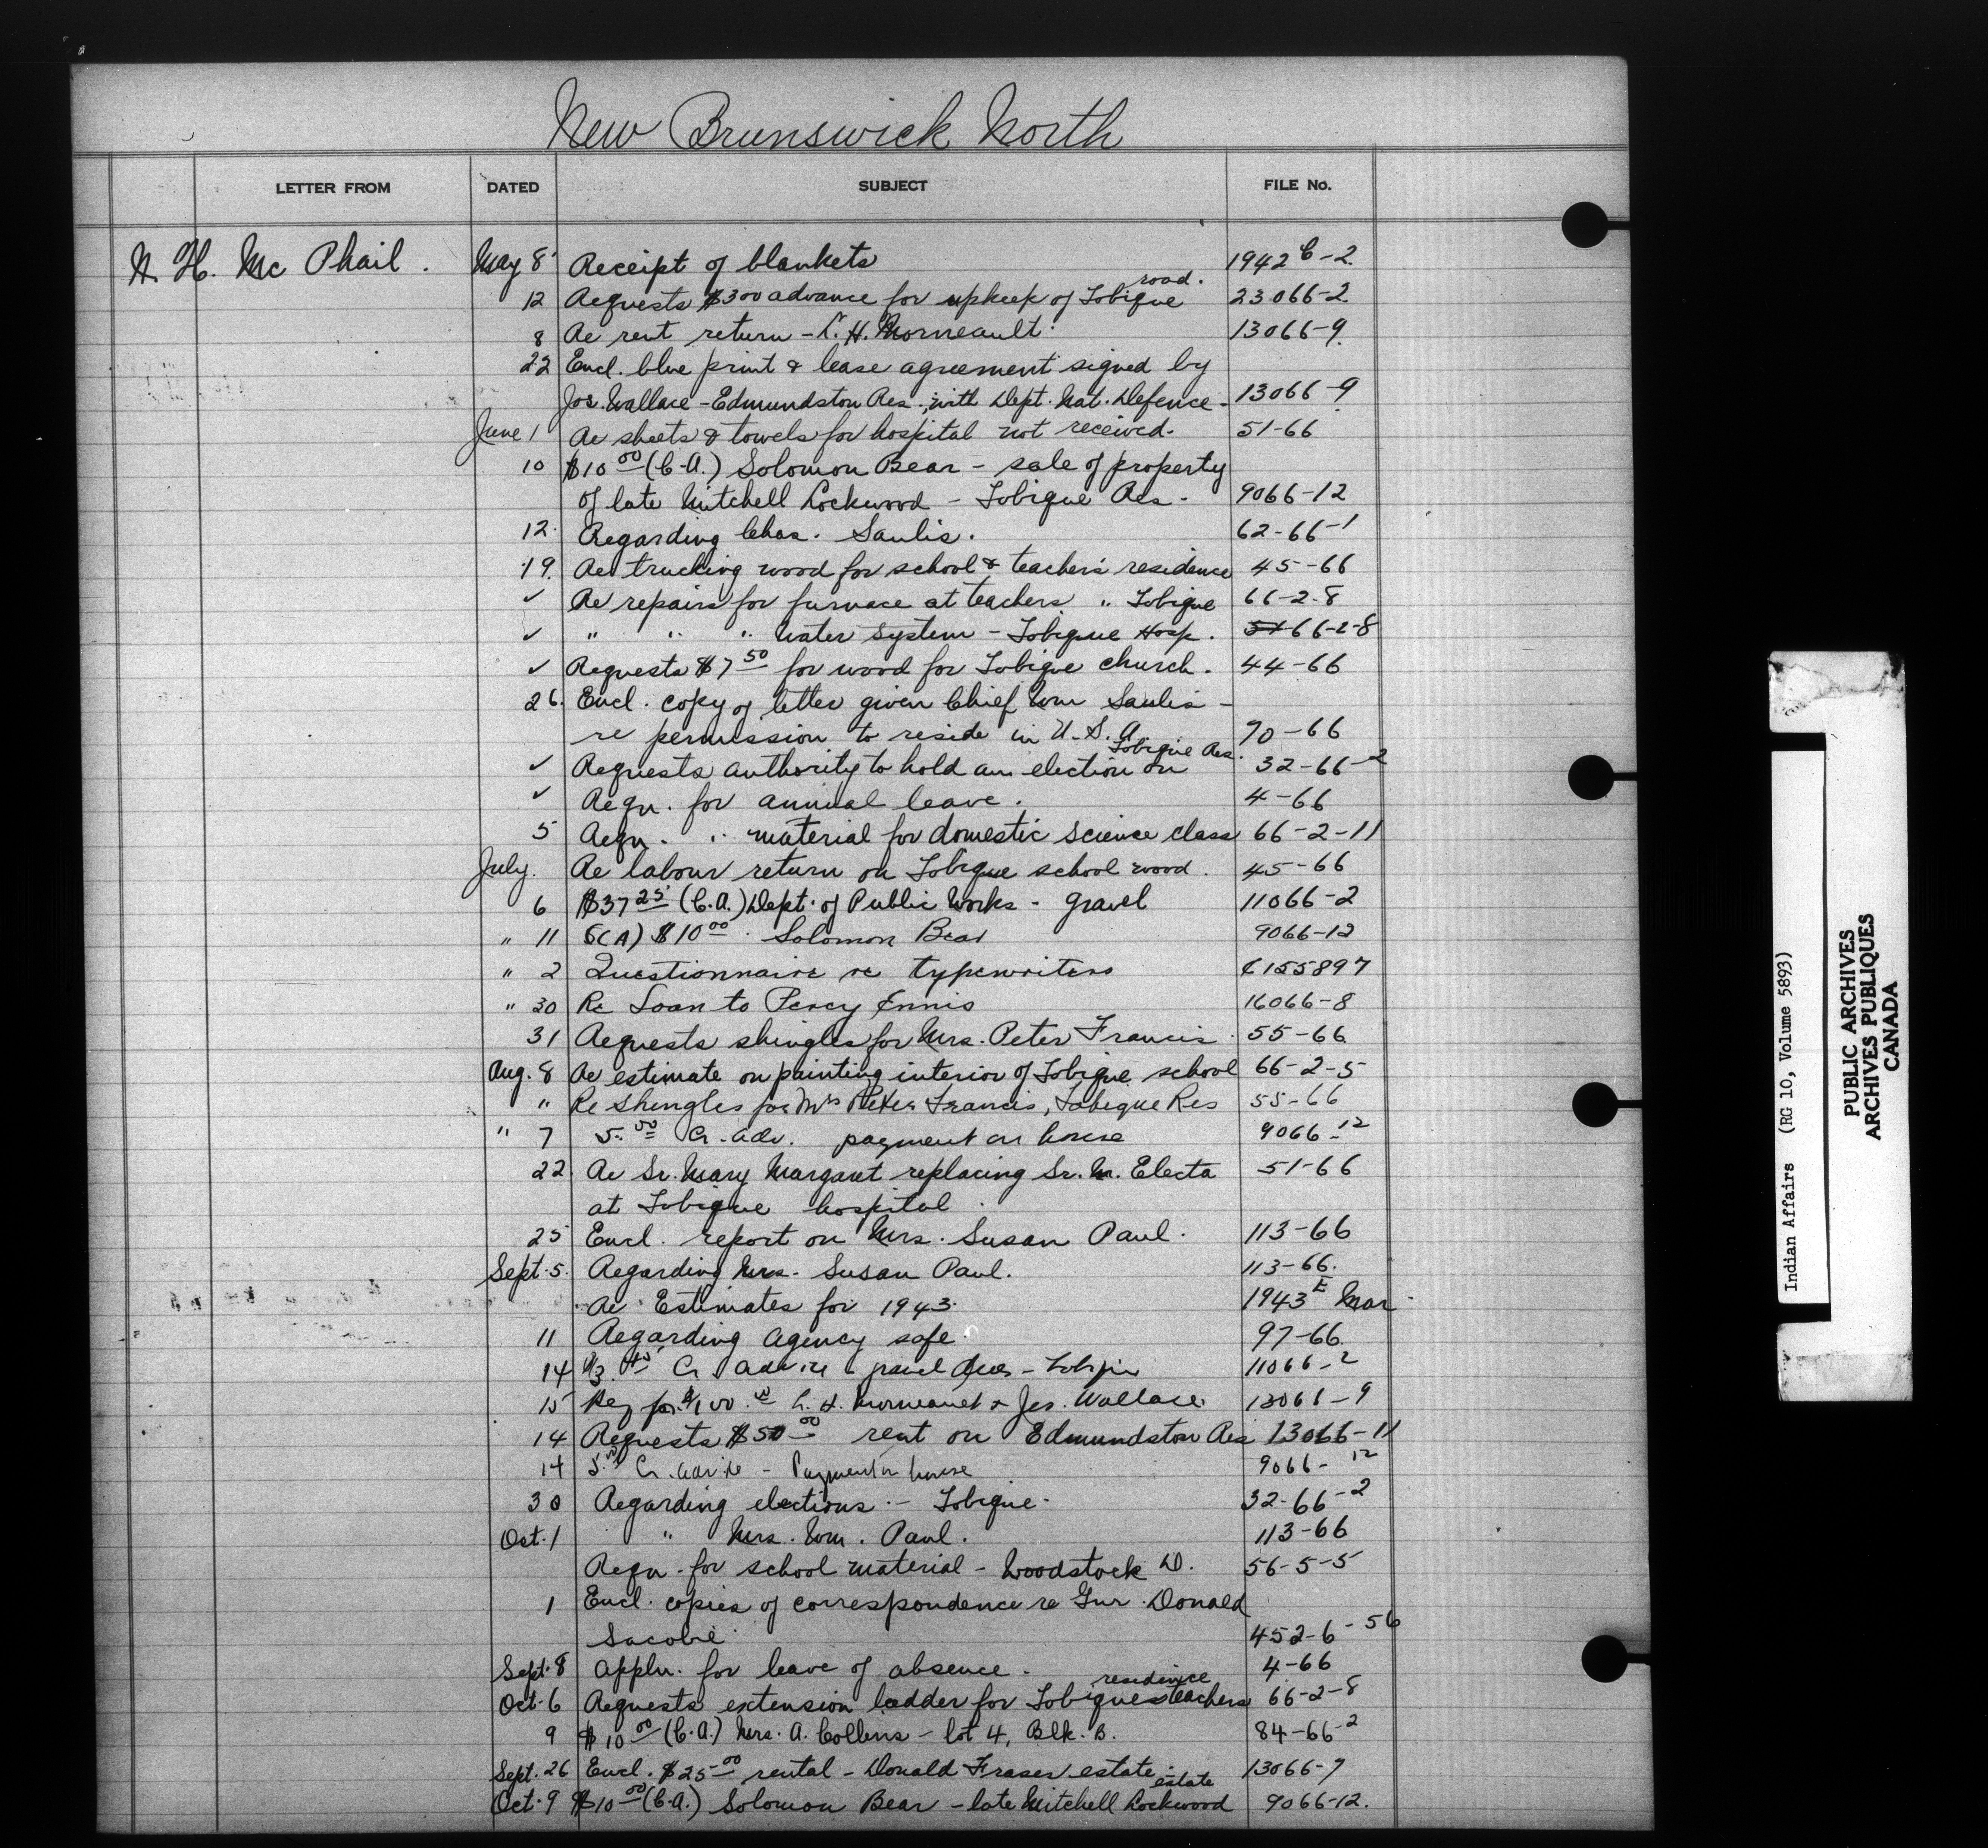 New Brunswick North
LETTER FROM DATED SUBJECT FILE No.
N. H. Mc Phail. May 8 Receipt of blankets 1942 C-2.
road.
12 Requests $300 advance for upkeep of Tobique 23066-2.
8 Re rent return - L. H. Morneault. 13066-9.
22 Encl. blue print & lease agreement signed by
Jos. Wallace - Edmundston Res., with Dept. Nat. Defence - 13066-9
June 1 Re sheets & towels for hospital not received. 51-66
10 $10 00 (C.A.) Solomon Bear - sale of property
of late Mitchell Lockwood - Tobique Res. 9066-12
12. Regarding Chas. Saulis. 62-66-1
19. Re trucking wood for school & teacher's residence 45-66
✓ Re repairs for furnace at teachers " Tobique 66-2-8
✓ " " " Water System - Tobique Hosp. 66-2-8
✓ Requests $7 50 for wood for Tobique church. 44-66
26. Encl. copy of letter given Chief Wm Saulis -
re permission to reside in U.S.A. 70-66
Tobique Res.
✓ Requests authority to hold an election on 32-66-2
✓ Reqn. for annual leave. 4-66
5 Reqn. " material for domestic science class 66-2-11
July. Re labour return on Tobique school wood. 45-66
6 $37 25 (C.A.) Dept. of Public Works - gravel 11066-2
" 11 C(A) $10 00. Solomon Bear 9066-12
" 2 Questionnaire re typewriters 155897
" 30 Re Loan to Percy Ennis 16066-8
31 Requests shingles for Mrs. Peter Francis. 55-66
Aug. 8 Re estimate on painting interior of Tobique school 66-2-5
" Re Shingles for Mrs Peter Francis, Tobique Res 55-66
" 7 5. 00 Cr. adv. payment on house 9066-12
22 Re Sr. Mary Margaret replacing Sr. M. Electa 51-66
at Tobique hospital
25 Encl. report on Mrs. Susan Paul. 113-66
Sept. 5. Regarding Mrs. Susan Paul. 113-66.
Re Estimates for 1943. 1943 E Mar.
11 Regarding agency safe. 97-66.
14 Cr advice gravel dues - Tobique 11066-2
15 Req for $100. 00 L. H. Morneault & Jos. Wallace. 13066-9
14 Requests $50 00 rent on Edmundston Res 13066-11
14 5. 00 Cr. advice - Payment on house 9066-12
30 Regarding elections - Tobique. 32-66-2
Oct. 1 " Mrs. Wm. Paul. 113-66
Reqn. for school material - Woodstock D. 56-5-5
1 Encl. copies of correspondence re Gnr. Donald
Sacobie 452-6-56
Sept. 8 Appln. for leave of absence. 4-66
residence
Oct. 6 Requests extension ladder for Tobique teachers 66-2-8
9 $10 00 (C.A.) Mrs. A. Collens - lot 4, Blk. B. 84-66-2
Sept. 26 Encl. $25 00 rental - Donald Fraser estate. 13066-7
estate
Oct. 9 $10 00 (C.A.) Solomon Bear - late Mitchell Lockwood 9066-12.
Indian Affairs (RG 10, Volume 5893)
PUBLIC ARCHIVES
ARCHIVES PUBLIQUES
CANADA